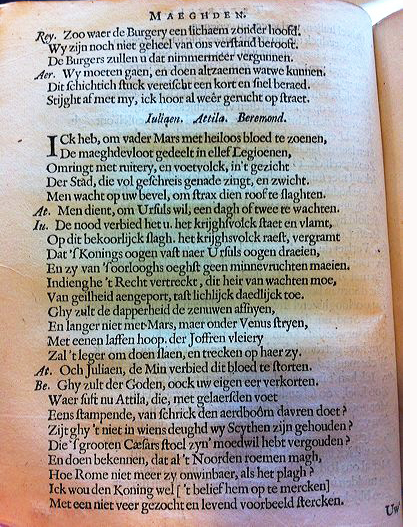 MAEGHDEN.
Rey. Zoo waer de Burgery een lichaem zonder hoofd.
Wy zijn noch niet geheel van ons verstand berooft.
De Burgers zullen u dat nimmermeer vergunnen.
Aer. Wy moeten gaen, en doen altzaemen wat we kunnen.
Dit schichtich stuck vereischt een kort en snel beraed.
Stijght af met my, ick hoor al weêr gerucht op straet.
Iuliaen. Attila. Beremond.
ICk heb, om vader Mars met heiloos bloed te zoenen,
De maeghdevloot gedeelt in ellef Legioenen,
Omringt met ruitery, en voetvolck, in't gezicht
Der Stad, die vol geschreis genade zingt, en zwicht.
Men wacht op uw bevel, om strax dien roof te slaghten.
At. Men dient, om Ursuls wil, een dagh of twee te wachten.
Iu. De nood verbied het u. het krijghsvolck staet en vlamt,
Op dit bekoorlijck slagh. het krijghsvolck raest, vergramt
Dat 's Konings oogen vast naer Ursuls oogen draeien,
En zy van 's oorlooghs oeghst geen minnevruchten maeien.
Indien ghe 't Recht vertreckt, dit heir van wachten moe,
Van geilheid aengeport, tast lichlijck daedlijck toe.
Ghy zult de dapperheid de zenuwen afsnyen,
En langer niet met Mars, maer onder Venus stryen,
Met eenen lassen hoop. der Joffren vleiery
Zal 't leger om doen slaen, en trecken op haer zy.
At. Och Juliaen, de Min verbied dit bloed te storten.
Be. Ghy zult der Goden, oock uw eigen eer verkorten.
Waer suft nu Attila, die, met gelaersden voet
Eens stampende, van schrick den aerdboôm davren doet?
Zijt ghy 't niet in wiens deughd wy Scythen zijn gehouden?
Die 's grooten Cæsars stoel zyn' moedwil hebt vergouden?
En doen bekennen, dat al 't Noorden roemen magh,
Hoe Rome niet meer zy onwinbaer, als het plagh?
Ick wou den Koning wel [ 't belief hem op te mercken]
Met een niet veer gezocht en levend voorbeeld stercken.
Uw